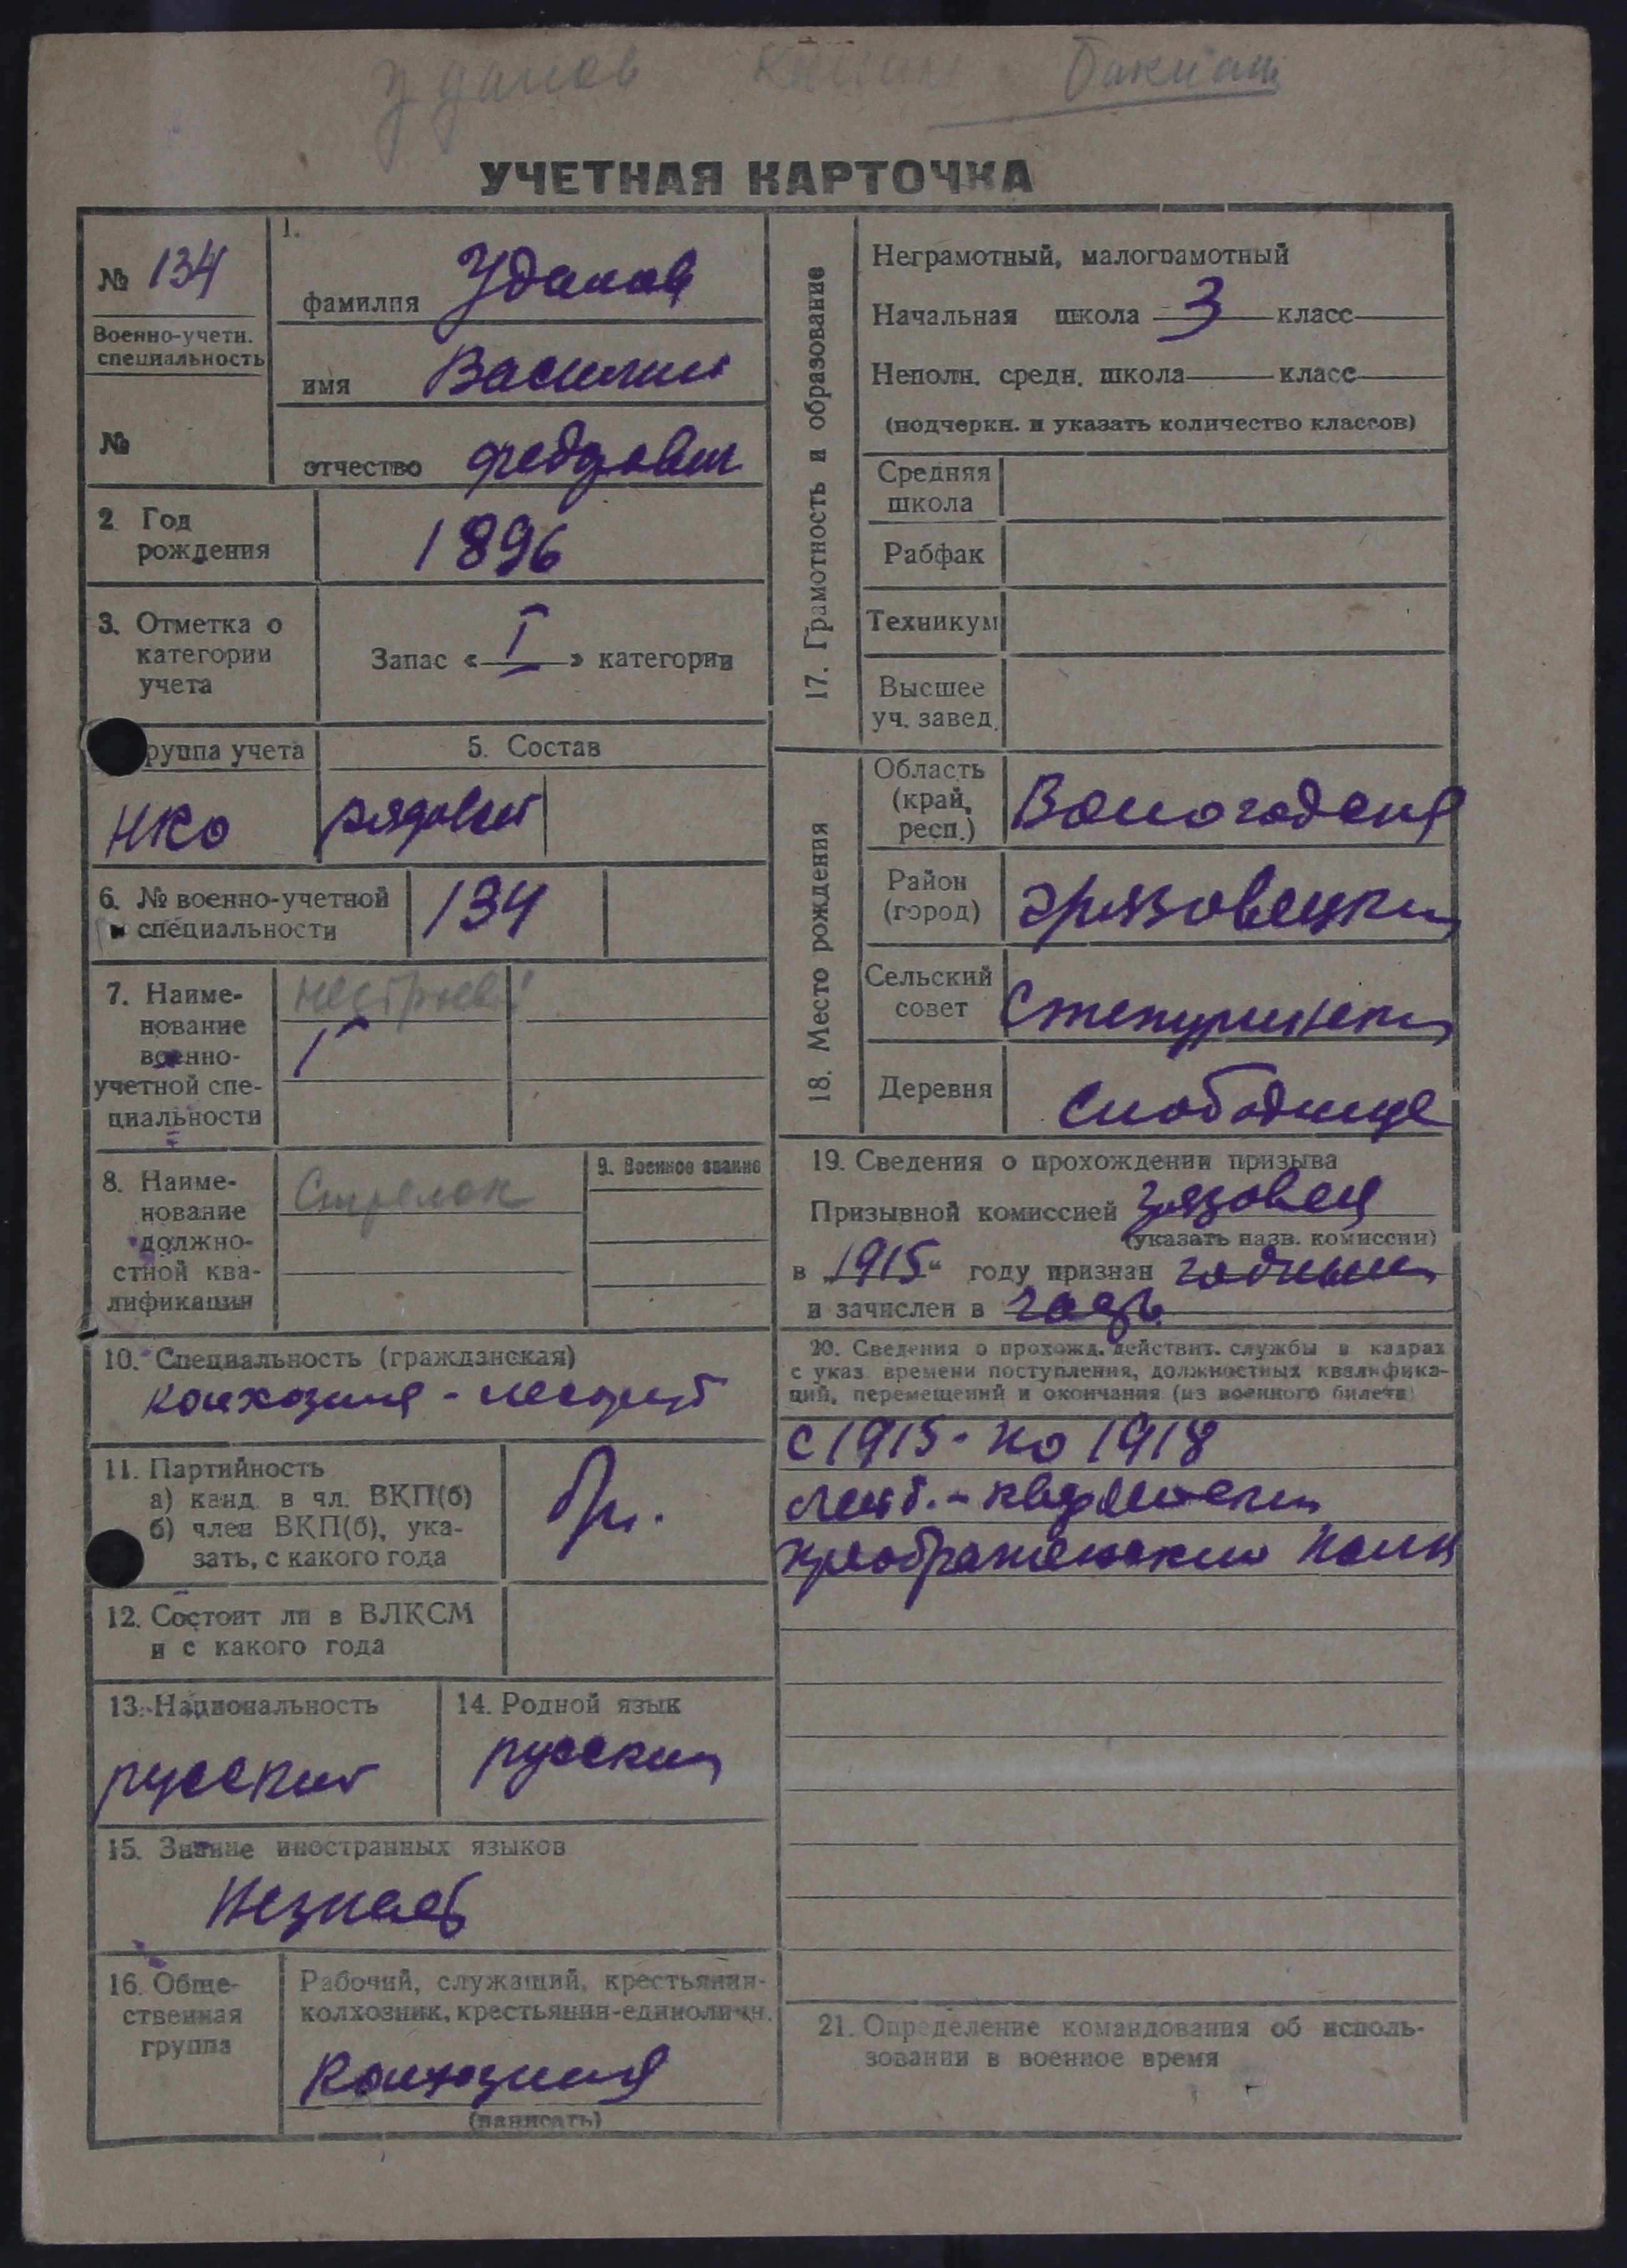 УЧЕТНАЯ КАРТОЧКА
№ 134
Военно-учетн.
специальность
№
1.
фамилия Уданов
имя Василий
отчество Федорович
2 Год
рождения
1896
3. Отметка о
категории
учета
Запас « I » категории
руппа учета
НКО
5. Состав
рядовой
6. № военно-учетной
специальности
134
7. Наиме-
нование
военно-
учетной спе-
циальности
8. Наиме-
нование
должно-
стной ква-
лификации
Стрелок
9. Военное звание
10. Специальность (гражданская)
колхозник -
11. Партийность
а) канд. в чл. ВКП(б)
б) член ВКП(б), ука-
зать, с какого года
12. Состоит ли в ВЛКСМ
и с какого года
13. Национальность
русский
14. Родной язык
русский
15. Знание иностранных языков
Незнает
16. Обще-
ственная
группа
Рабочий, служащий, крестьянин-
колхозник, крестьянин-единоличн.
Колхозник
(написать)
17. Грамотность и образование
Неграмотный, малограмотный
Начальная школа 3 класс
Неполн. средн. школа класс
(подчеркн. и указать количество классов)
Средняя
школа
Рабфак
Техникум
Высшее
уч. завед.
18. Место рождения
Область
(край,
респ.)
Вологодская
Район
(город)
Грязовецкий
Сельский
совет
Деревня
Слободище
19. Сведения о прохождении призыва
Призывной комиссией Грязовец
(указать назв. комиссии)
в „1915“ году признан годным
и зачислен в
20. Сведения о прохожд. действит. службы в кадрах
с указ. времени поступления, должностных квалифика-
ций, перемещений и окончания (из военного билета)
с 1915 - по 1918
Преображенский полк
21. Определение командования об исполь-
зовании в военное время